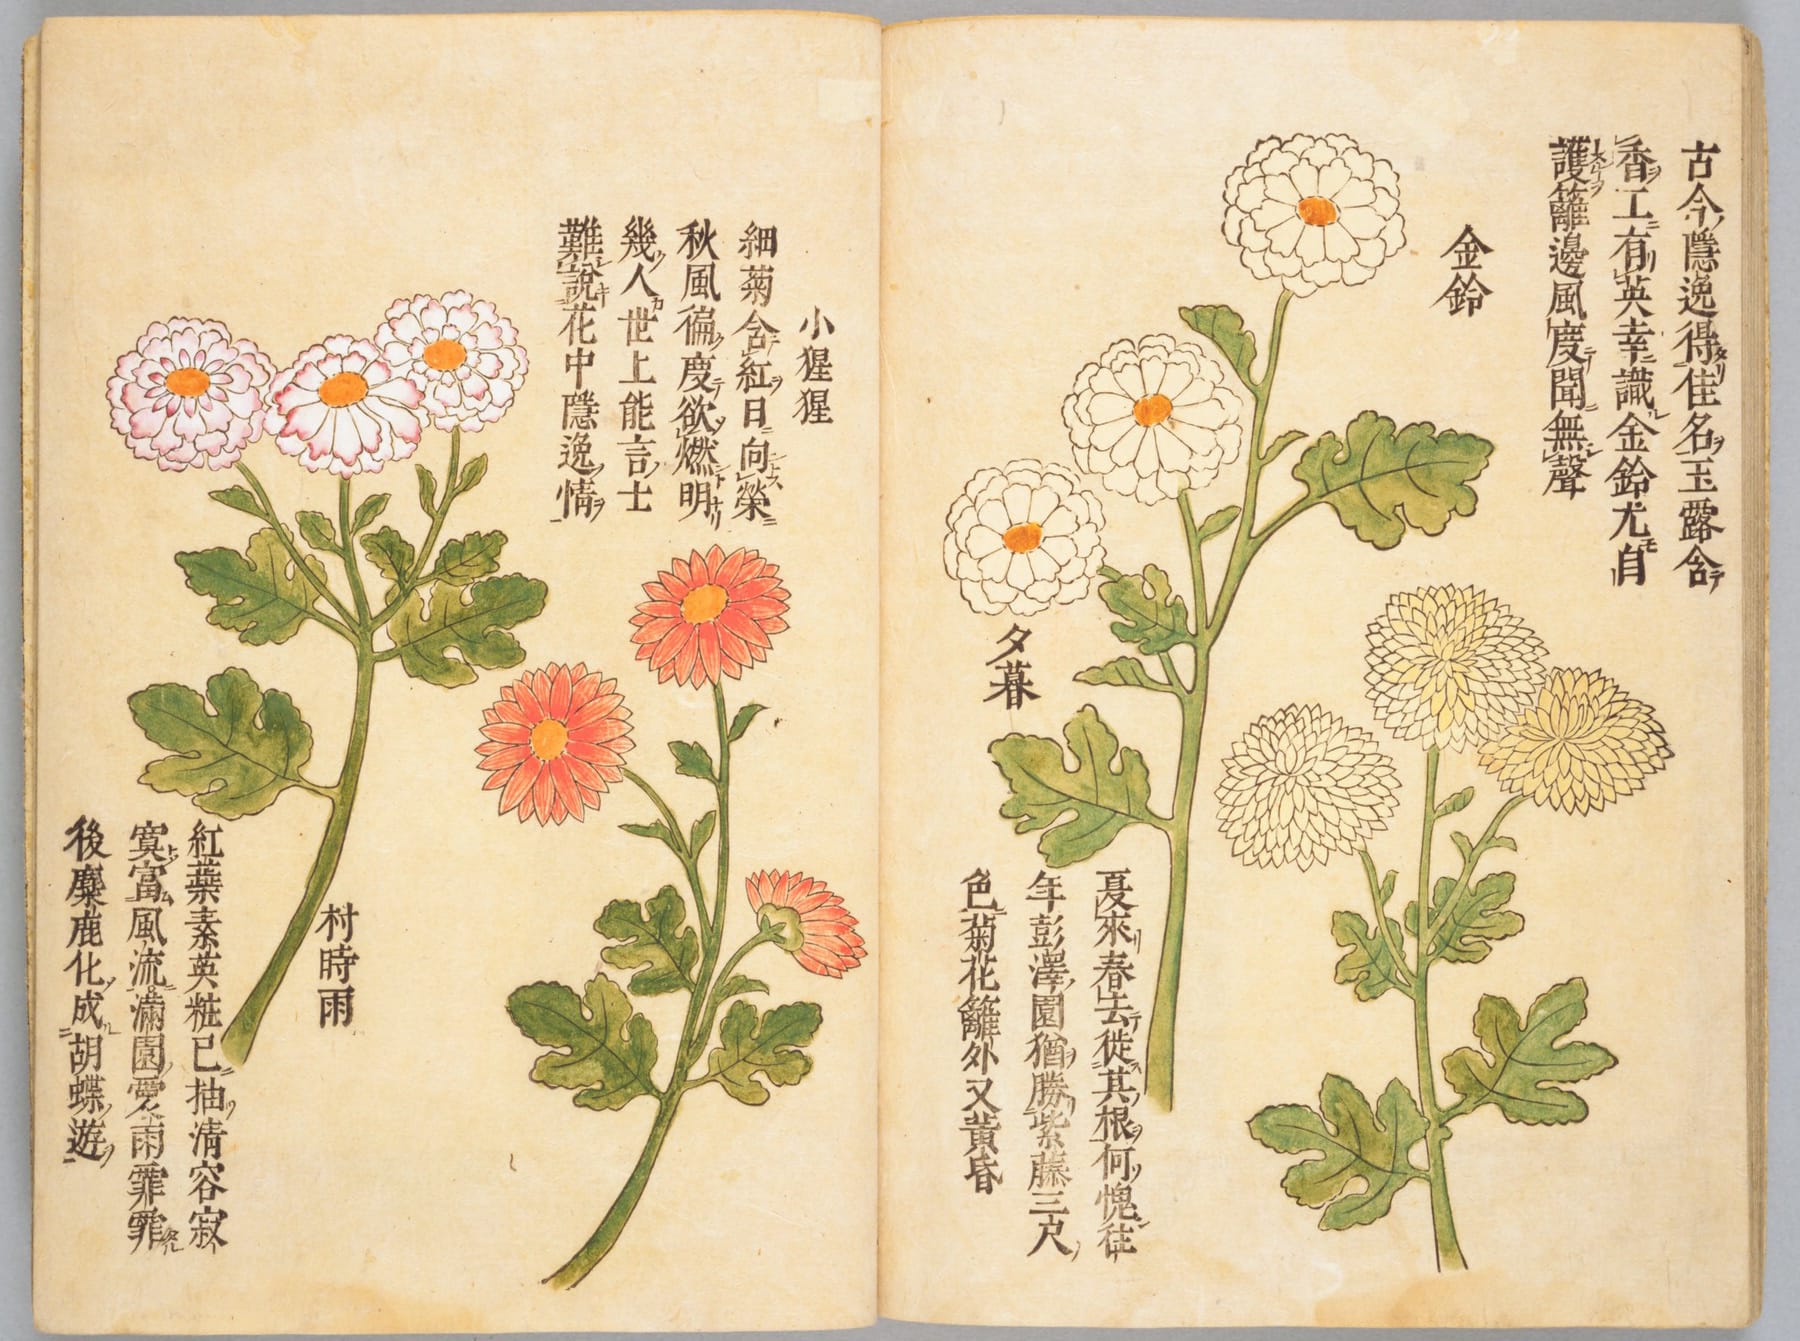 金鈴
古今隱逸得佳名玉露含
香工有英幸識金鈴尤自
護籬邊風度聞無聲
夕暮
夏來春去徙其根何愧往
年彭澤園猶勝紫藤三尺
色菊花籬外又黃昏
小猩猩
細菊含紅日向榮
秋風徧度欲燃明
幾人世上能言士
難說花中隱逸情
村時雨
紅葉素英粧已抽清容寂
寞富風流滿園愛雨霏霏
後麋鹿化成胡蝶遊